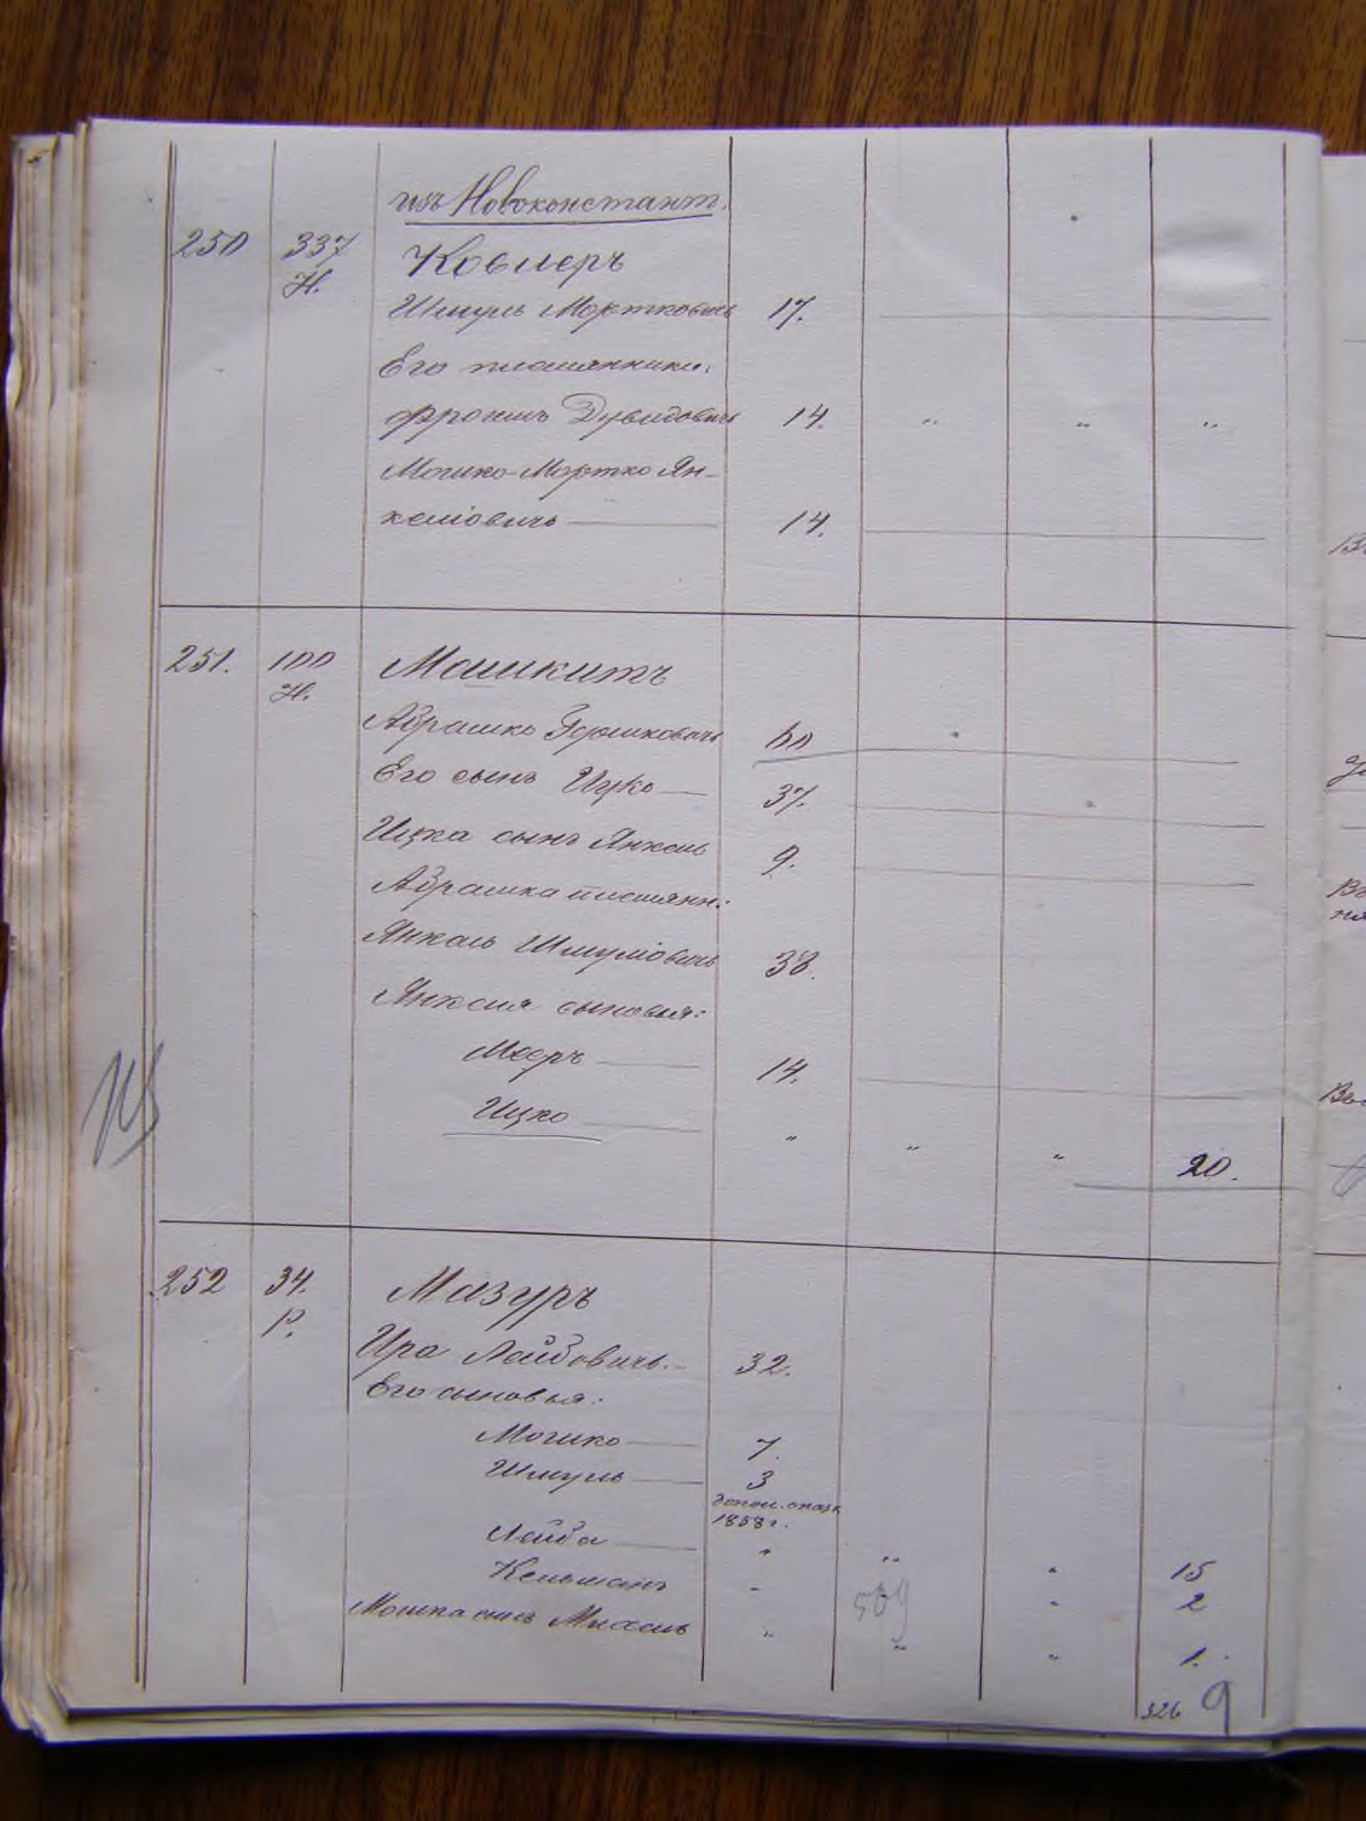 изъ Новоконстант.
250 337 Ковлеръ
Н.
Шмуль Мортковичъ 17.
Его племянники:
Фроимъ Дувидовичъ 14. " " "
Мошко-Мортко Ян-
келіовичъ 14.
251. 100 Машкитъ
Н.
Абрашко Гершковичъ 60
Его сынъ Ицко 37.
Ицка сынъ Янкель 9.
Абрашка племянн:
Янкель Шмуліовичъ 38.
Янкеля сыновья:
Мееръ 14.
Ицко " " " 20.
252 34. Мазуръ
Р.
Ира Лейбовичъ. 32.
Его сыновья:
Мошко 7.
Шмуль 3
допол. сказк
1858 г.
Лейба " " " 15
Кельманъ " 509 " 2
Мошка сынъ Михель " " " 1.
326 9